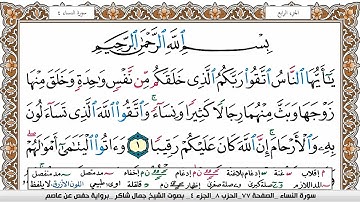 الجزء الرابع
سورة النساء ٤
بِسْمِ ٱللَّهِ ٱلرَّحْمَٰنِ ٱلرَّحِيمِ
يَٰٓأَيُّهَا ٱلنَّاسُ ٱتَّقُوا۟ رَبَّكُمُ ٱلَّذِى خَلَقَكُم مِّن نَّفْسٍ وَٰحِدَةٍ وَخَلَقَ مِنْهَا
زَوْجَهَا وَبَثَّ مِنْهُمَا رِجَالًا كَثِيرًا وَنِسَآءً ۚ وَٱتَّقُوا۟ ٱللَّهَ ٱلَّذِى تَسَآءَلُونَ
بِهِۦ وَٱلْأَرْحَامَ ۚ إِنَّ ٱللَّهَ كَانَ عَلَيْكُمْ رَقِيبًا ١ وَءَاتُوا۟ ٱلْيَتَٰمَىٰٓ أَمْوَٰلَهُمْ ۖ
سورة النساء _الصفحة ٧٧ _الحزب ٨_ الجزء ٤_ بصوت الشيخ جمال شاكر _برواية حفص عن عاصم